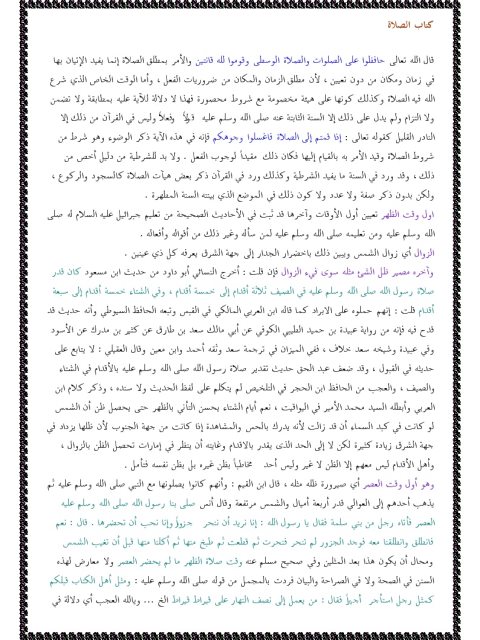 كتاب الصلاة
قال الله تعالى حافظوا على الصلوات والصلاة الوسطى وقوموا لله قانتين والأمر بمطلق الصلاة إنما يفيد الإتيان بها
في زمان ومكان من دون تعيين ، لأن مطلق الزمان والمكان من ضروريات الفعل ، وأما الوقت الخاص الذي شرع
الله فيه الصلاة وكذلك كونها على هيئة مخصومة مع شروط محصورة فهذا لا دلالة للآية عليه بمطابقة ولا تضمن
ولا التزام ولم يدل على ذلك إلا السنة الثابتة عنه صلى الله وسلم عليه قولاً وفعلاً وليس في القرآن من ذلك إلا
النادر القليل كقوله تعالى : إذا قمتم إلى الصلاة فاغسلوا وجوهكم فإنه في هذه الآية ذكر الوضوء وهو شرط من
شروط الصلاة وقيد الأمر به بالقيام إليها فكان ذلك مقيداً لوجوب الفعل . ولا بد للشرطية من دليل أخص من
ذلك ، وقد ورد في السنة ما يفيد الشرطية وكذلك ورد في القرآن ذكر بعض هيآت الصلاة كالسجود والركوع ،
ولكن بدون ذكر صفة ولا عدد ولا كون ذلك في الموضع الذي بينته السنة المطهرة .
اول وقت الظهر تعيين أول الأوقات وآخرها قد ثبت في الأحاديث الصحيحة من تعليم جبرائيل عليه السلام له صلى
الله وسلم عليه ومن تعليمه صلى الله وسلم عليه لمن سأله وغير ذلك من أقواله وأفعاله .
الزوال أي زوال الشمس ويبين ذلك باخضرار الجدار إلى جهة الشرق يعرفه كل ذي عينين .
وآخره مصير ظل الشئ مثله سوى فيء الزوال فإن قلت : أخرج النسائي أبو داود من حديث ابن مسعود كان قدر
صلاة رسول الله صلى الله وسلم عليه في الصيف ثلاثة أقدام إلى خمسة أقدام ، وفي الشتاء خمسة أقدام إلى سبعة
أقدام قلت : إنهم حملوه على الابراد كما قاله ابن العربي المالكي في القبس وتبعه الحافظ السيوطي وأنه حديث قد
قدح فيه فإنه من رواية عبيدة بن حميد الطيبي الكوفي عن أبي مالك سعد بن طارق عن كثير بن مدرك عن الأسود
وفي عبيدة وشيخه سعد خلاف ، ففي الميزان في ترجمة سعد وثقه أحمد وابن معين وقال العقيلي : لا يتابع على
حديثه في القبول ، وقد ضعف عبد الحق حديث تقدير صلاة رسول الله صلى الله وسلم عليه بالأقدام في الشتاء
والصيف ، والعجب من الحافظ ابن الحجر في التلخيص لم يتكلم على لفظ الحديث ولا سنده ، وذكر كلام ابن
العربي وأبطله السيد محمد الأمير في اليواقيت ، نعم أيام الشتاء يحسن التأني بالظهر حتى يحصل ظن أن الشمس
لو كانت في كبد السماء أن قد زالت لأنه يدرك بالحس والمشاهدة إذا كانت من جهة الجنوب لأن ظلها يزداد في
جهة الشرق زيادة كثيرة لكن لا إلى الحد الذى يقدر بالاقدام وغايته أن ينظر في إمارات تحصل الظن بالزوال ،
وأهل الأقدام ليس معهم إلا الظن لا غير وليس أحد مخاطباً بظن غيره بل بظن نفسه فتأمل .
وهو أول وقت العصر أي صيرورة ظله مثله ، قال ابن القيم : وأنهم كانوا يصلونها مع النبي صلى الله وسلم عليه ثم
يذهب أحدهم إلى العوالي قدر أربعة أميال والشمس مرتفعة وقال أنس صلى بنا رسول الله صلى الله وسلم عليه
العصر فأتاه رجل من بني سلمة فقال يا رسول الله : إنا نريد أن ننحر جزوراً وإنا نحب أن تحضرها . قال : نعم
فانطلق وانطلقنا معه فوجد الجزور لم تنحر فنحرت ثم قطعت ثم طبخ منها ثم أكلنا منها قبل أن تغيب الشمس
ومحال أن يكون هذا بعد المثلين وفي صحيح مسلم عنه وقت صلاة الظهر ما لم يحضر العصر ولا معارض لهذه
السنن في الصحة ولا في الصراحة والبيان فردت بالمجمل من قوله صلى الله وسلم عليه : ومثل أهل الكتاب قبلكم
كمثل رجل استأجر أجيراً فقال : من يعمل إلى نصف النهار على قيراط قيراط الخ ... ويالله العجب أي دلالة في